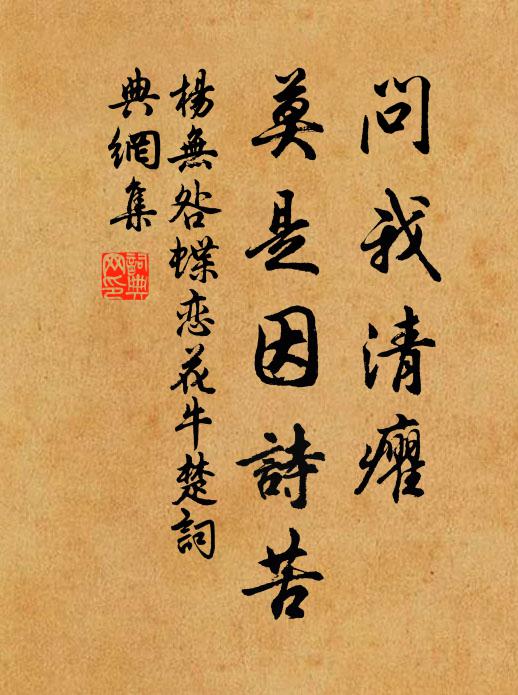 問我清癯
莫是因詩苦
楊無咎蝶恋花牛楚詞
典網集
詞典網印